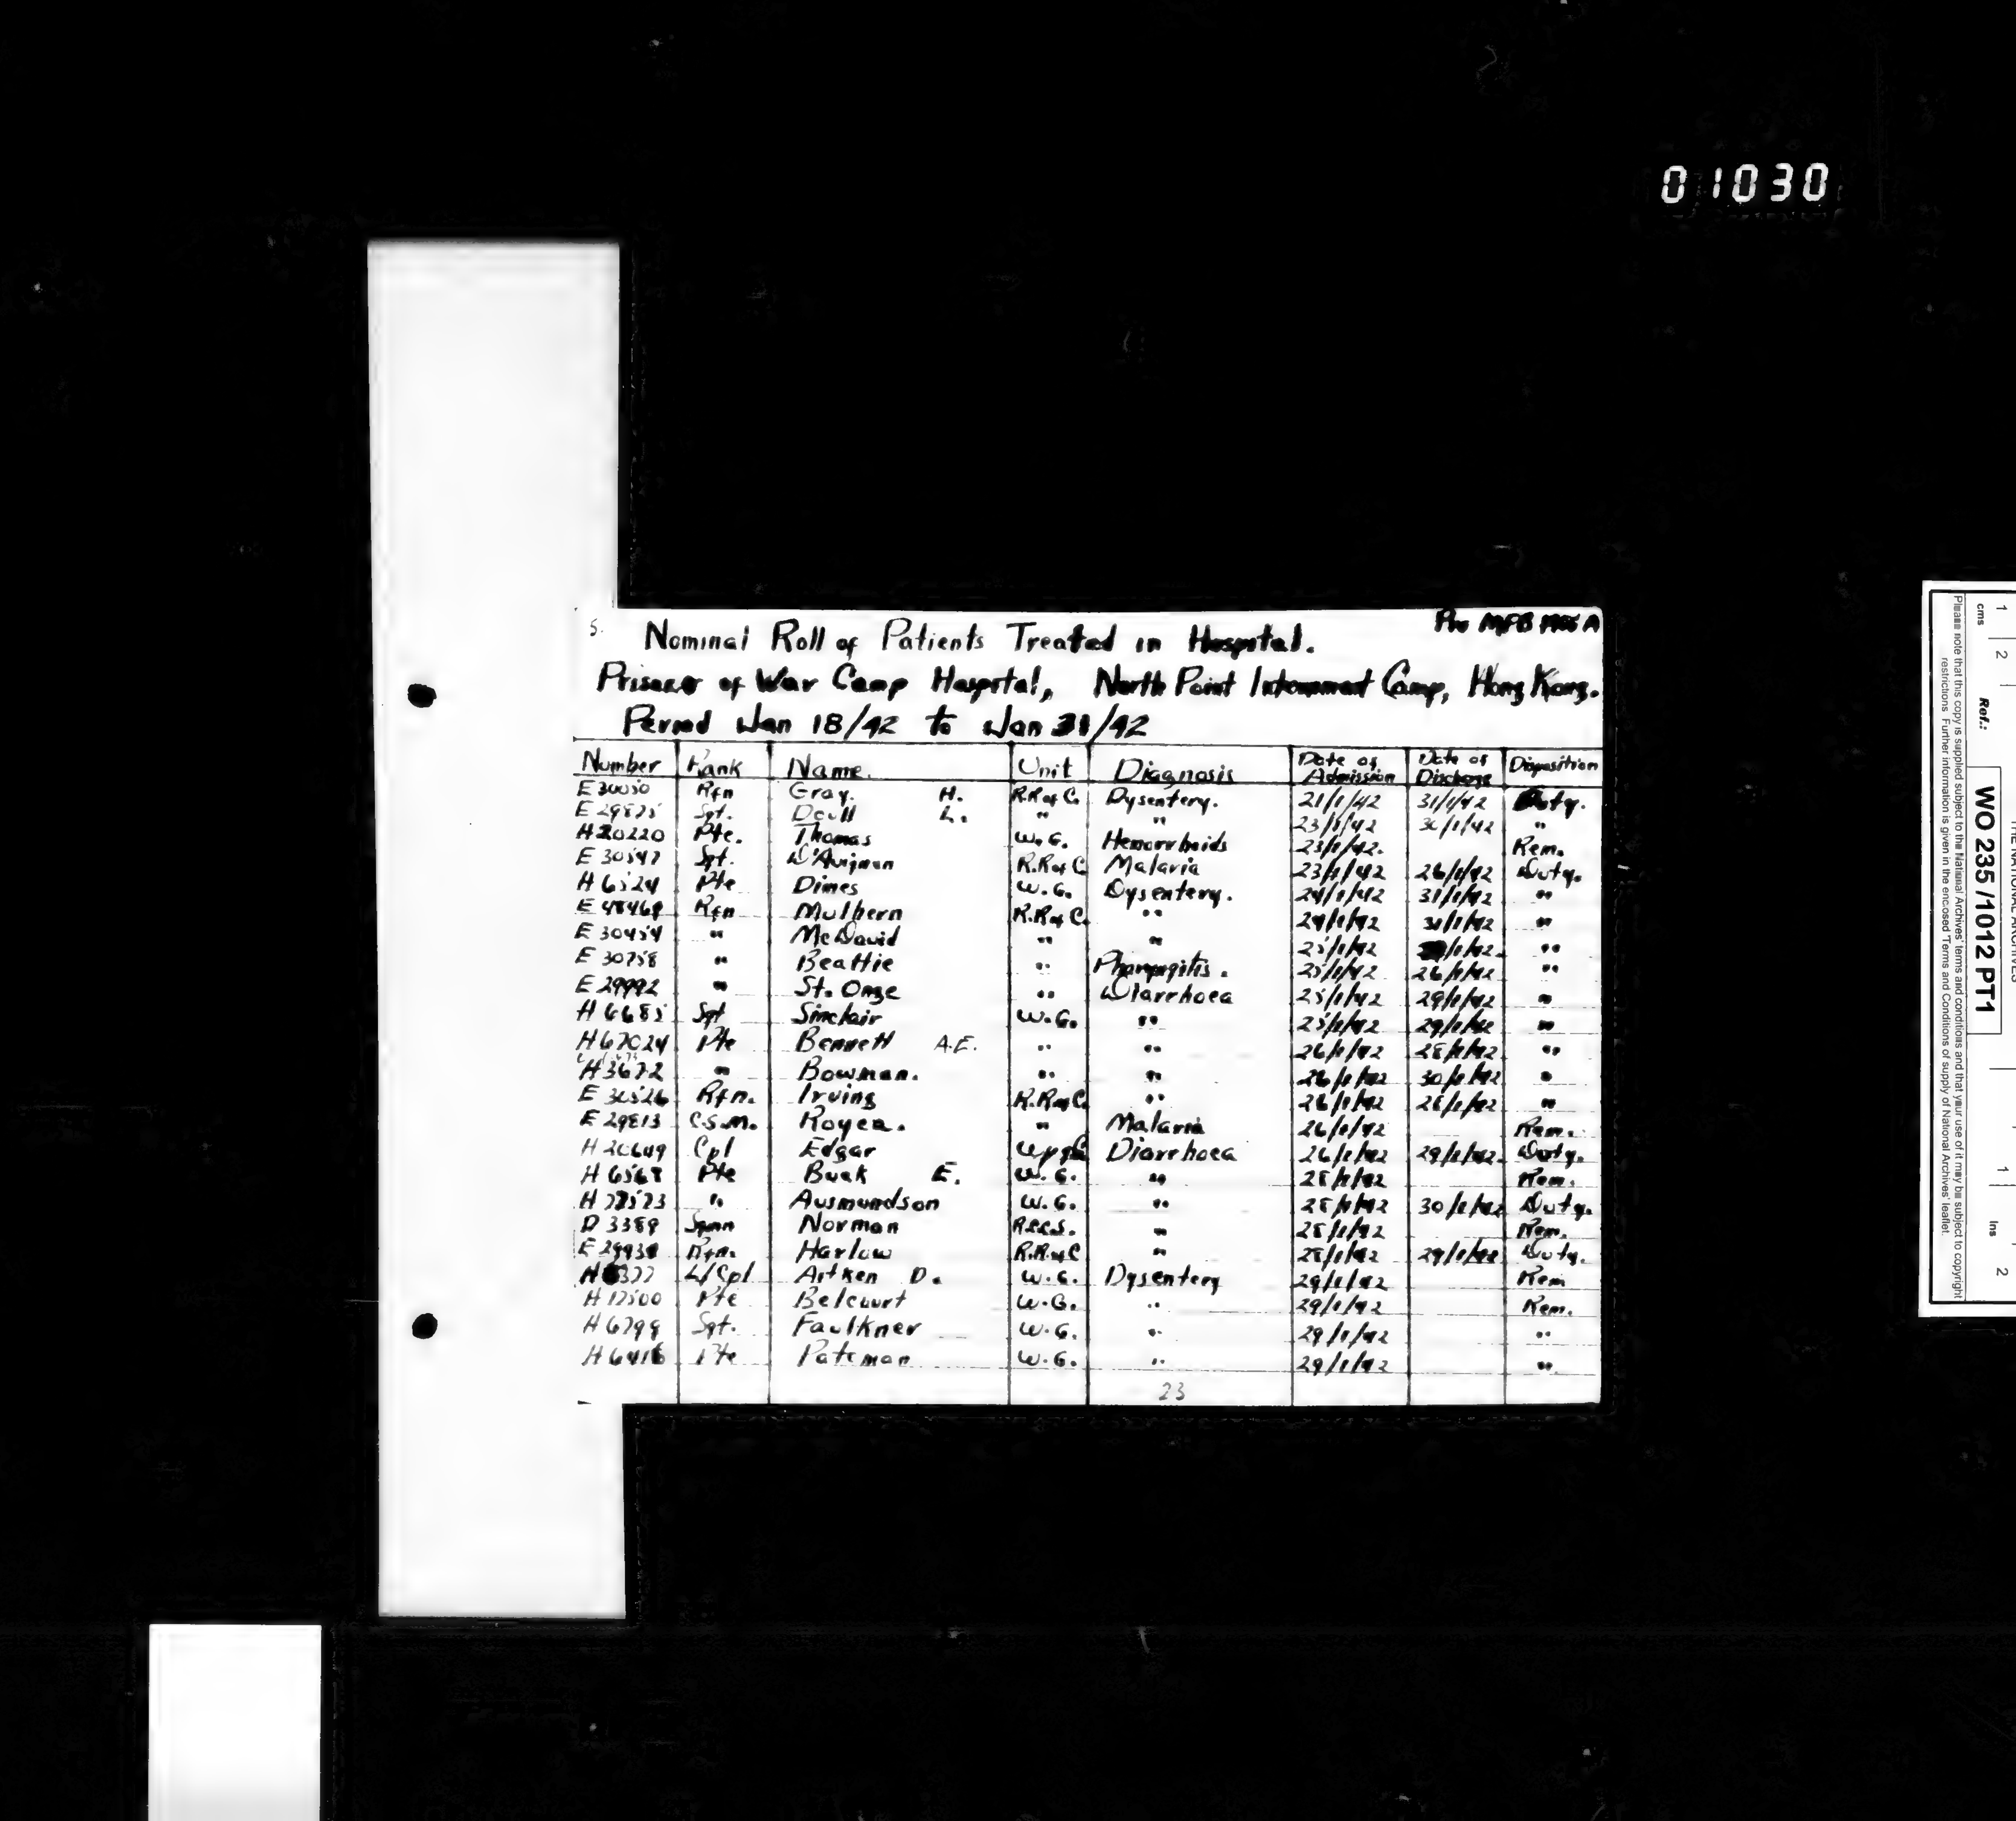 01030
5.
MFB A
Nominal Roll of Patients Treated in Hospital.
Prisoner of War Camp Hospital, North Point Internment Camp, Hong Kong.
Period Jan 18/42 to Jan 31/42
Number Rank Name. Unit Diagnosis Date of Admission Date of Discharge Disposition
E 30050 Rfn Gray. H. R.R of C. Dysentery. 21/1/42 31/1/42 Duty.
E 29875 Sgt. Doull L. " " 23/1/42 30/1/42 "
H 20220 Pte. Thomas W.G. Hemorrhoids 23/1/42. Rem.
E 30547 Sgt. D'Avignon R.R of C Malaria 23/1/42 26/1/42 Duty.
H 6524 Pte Dimes W.G. Dysentery. 24/1/42 31/1/42 "
Rfn Mulhern R.R of C. " 24/1/42 31/1/42 "
E 30454 " McDavid " " 25/1/42 /1/42. "
E 30758 " Beattie " Pharyngitis. 25/1/42 26/1/42 "
E 29992 " St. Onge " Diarrhoea 25/1/42 29/1/42 "
H 6685 Sgt Sinclair W.G. " 25/1/42 29/1/42 "
H 67024 Pte Bennett A.E. " " 26/1/42 28/1/42 "
H 3672 " Bowman. " " 26/1/42 30/1/42 "
E 30526 Rfn. Irving R.R of C. " 26/1/42 28/1/42 "
E 29813 C.S.M. Royea. " Malaria 26/1/42 Rem.
H 20649 Cpl Edgar Diarrhoea 26/1/42 29/1/42. Duty.
H 6568 Pte Buak E. W.G. " 28/1/42 Rem.
H 77573 " Ausmundson W.G. " 28/1/42 30/1/42 Duty.
D 3389 Sgmn Norman R.C.C.S. " 28/1/42 Rem.
Rfn. Harlow R.R of C " 28/1/42 29/1/42 Duty.
L/Cpl Aitken D. W.G. Dysentery 29/1/42 Rem
H 17500 Pte Belcourt W.G. " 29/1/42 Rem.
H 6799 Sgt. Faulkner W.G. " 29/1/42 "
H 6416 Pte Pateman W.G. " 29/1/42 "
23
THE NATIONAL ARCHIVES
Ref.: WO 235/1012 PT1
cms 1 2
ins 1 2
Please note that this copy is supplied subject to the National Archives' terms and conditions and that your use of it may be subject to copyright
restrictions. Further information is given in the enclosed 'Terms and Conditions of supply of National Archives' leaflet.